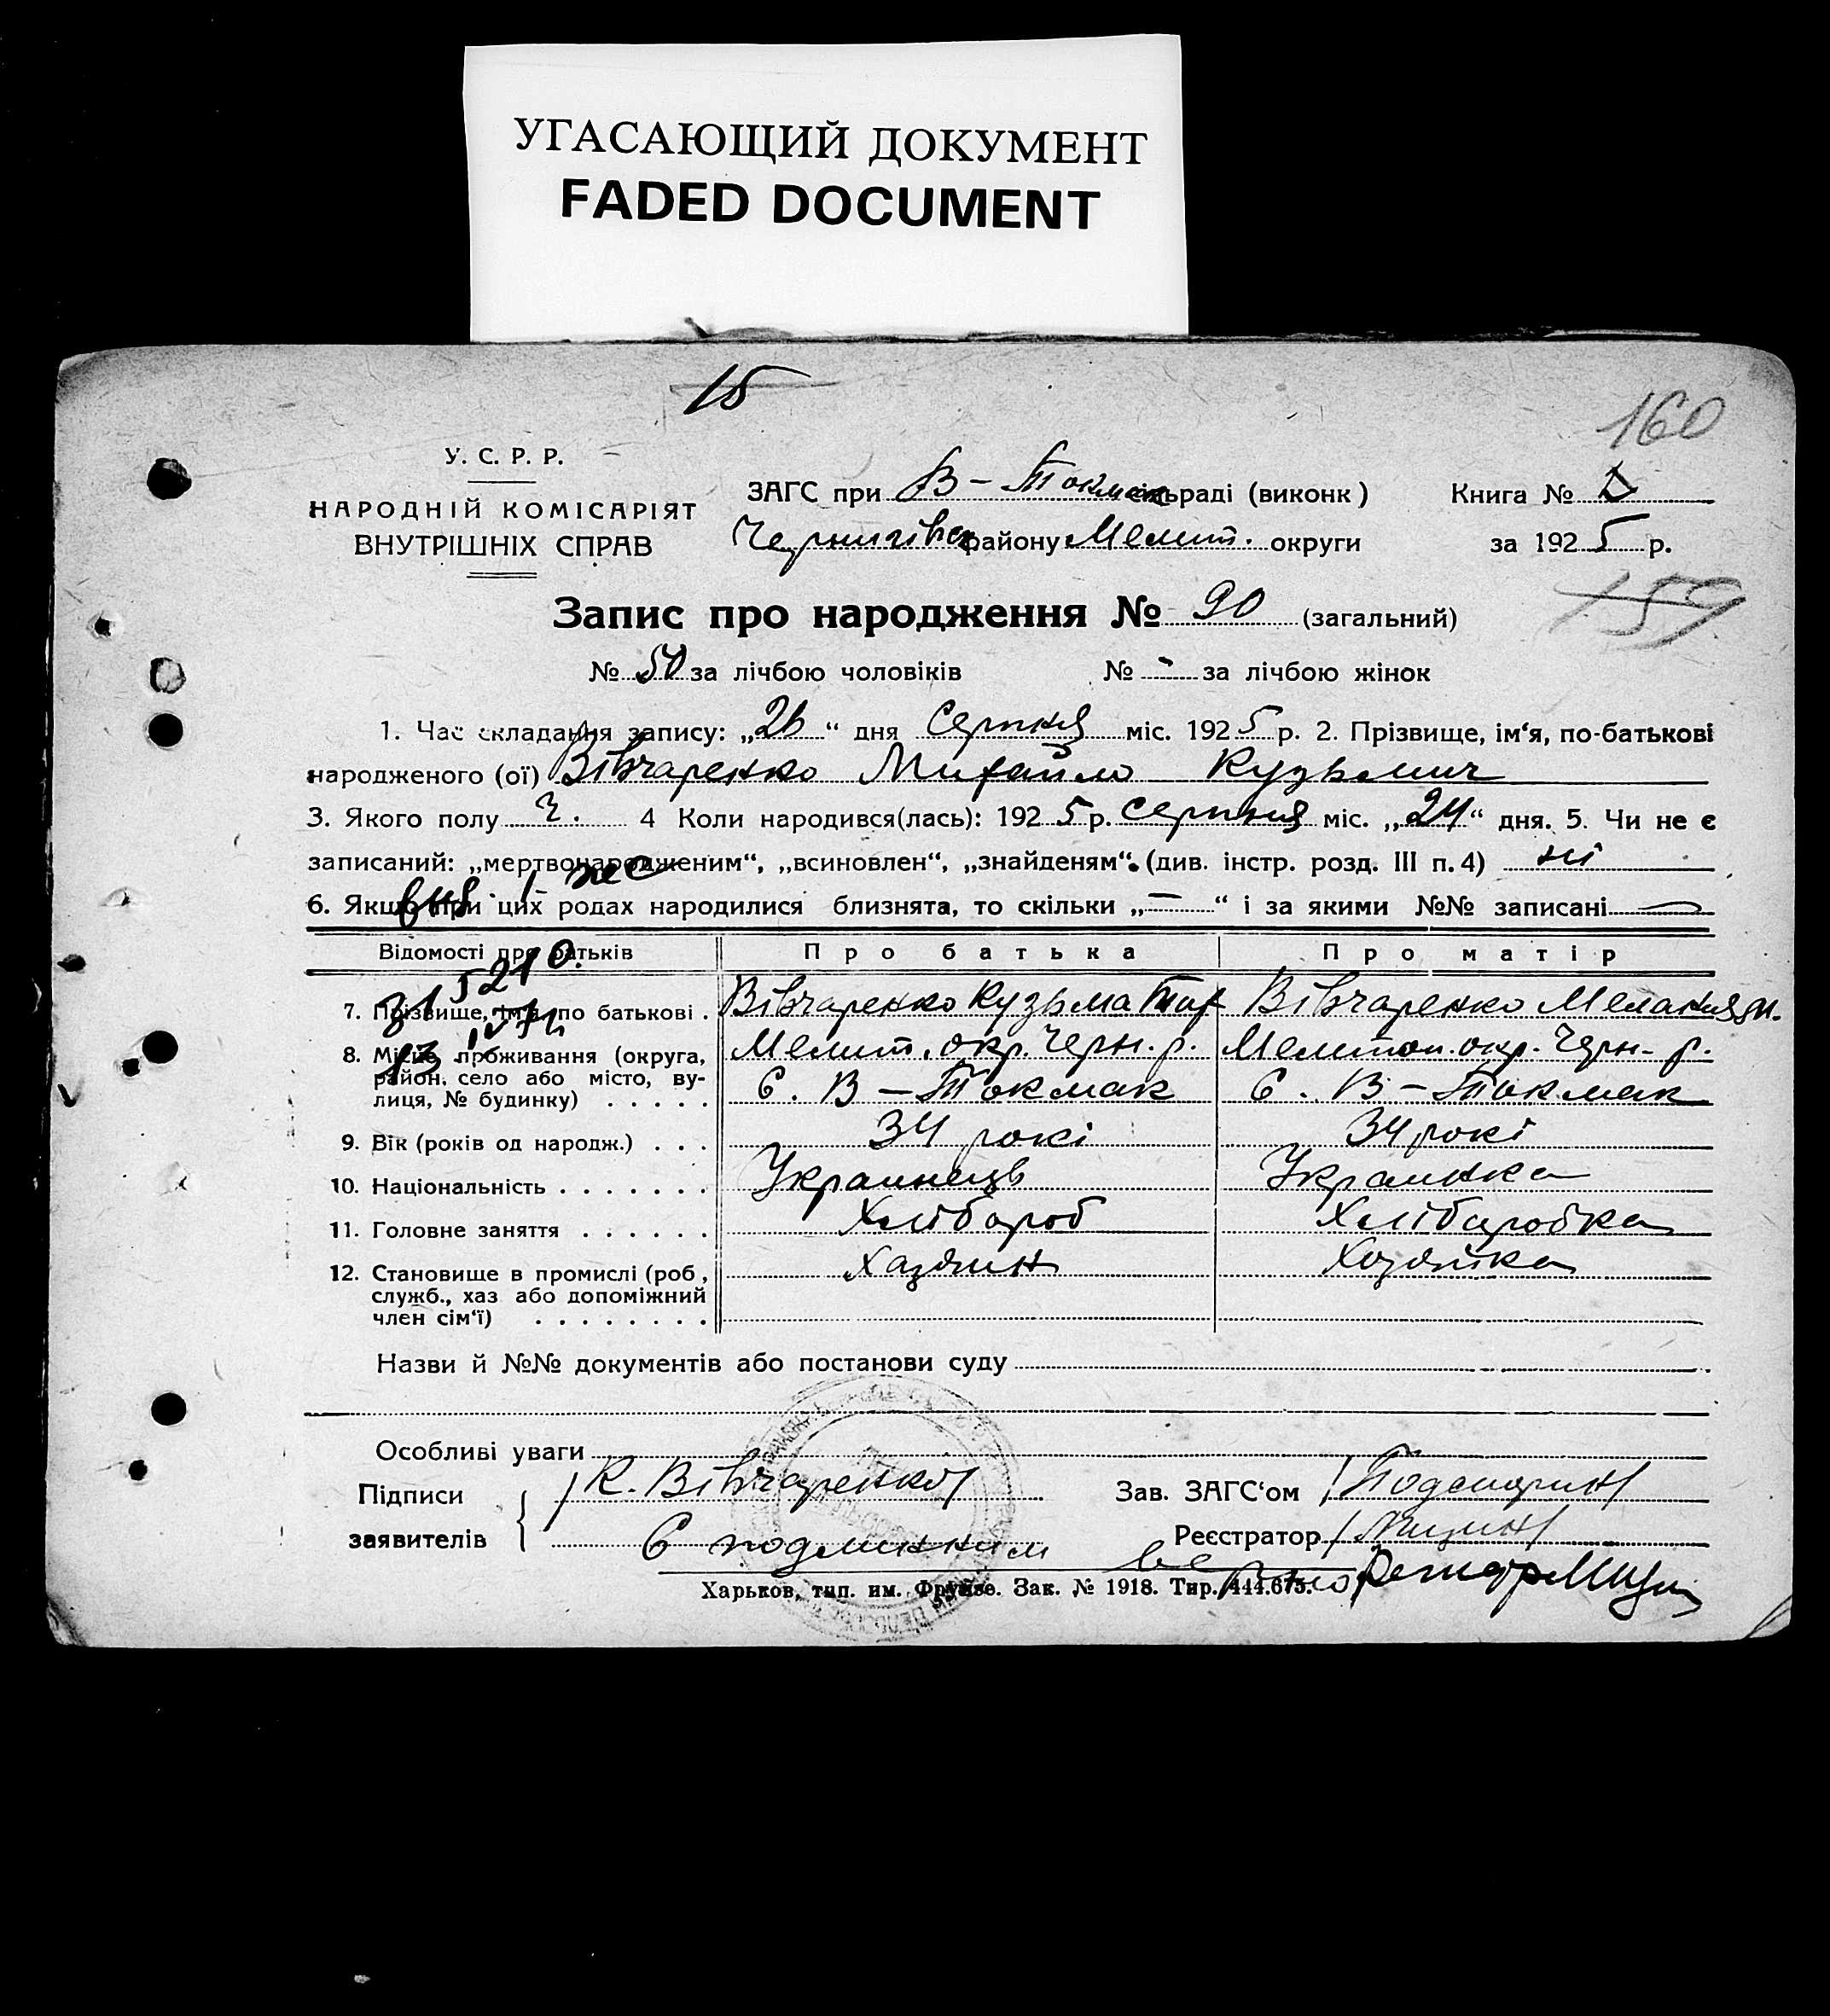 УГАСАЮЩИЙ ДОКУМЕНТ
FADED DOCUMENT
15
160
У. С. Р. Р.
НАРОДНІЙ КОМІСАРІЯТ
ВНУТРІШНІХ СПРАВ
ЗАГС при В-Токмак сільраді (виконк)
Книга №
Чернигівск району Мелит. округи
за 1925 р.
159
Запис про народження № 90 (загальний)
№ 50 за лічбою чоловіків № - за лічбою жінок
1. Час складання запису: „26“ дня Серпня міс. 1925 р. 2. Прізвище, ім‘я, по-батькові
народженого (ої) Вівчаренко Михайло Кузьмич
3. Якого полу ч. 4 Коли народився(лась): 1925 р. серпня міс. „24“ дня. 5. Чи не є
записаний: „мертвонародженим“, „всиновлен“, „знайденям“. (див. інстр. розд. III п. 4) ні
6. Якщо при цих родах народилися близнята, то скільки „—“ і за якими №№ записані —
Відомості про батьків Про батька Про матір
7. Прізвище, ім‘я, по батькові . Вівчаренко Кузьма Тит Вівчаренко Мелания
8. Місце проживання (округа, Мелит. окр. Черн. р. Мелитоп. окр. Черн. р.
район, село або місто, ву-
лиця, № будинку) . . . . . С. В-Токмак С. В-Токмак
9. Вік (років од народж.) . . . 34 рокі 34 рокі
10. Національність . . . . . . . Украинець Украинка
11. Головне заняття . . . . . . Хлібороб Хлібаробка
12. Становище в промислі (роб., Хазяин Хозяйка
служб., хаз. або допоміжний
член сім‘ї) . . . . . . . .
Назви й №№ документів або постанови суду
Особливі уваги
Підписи /К. Вівчаренко/ Зав. ЗАГС‘ом
заявителів С подлинним верно Реєстратор
Харьков, тип. им. Фрунзе. Зак. № 1918. Тир. 444.675.